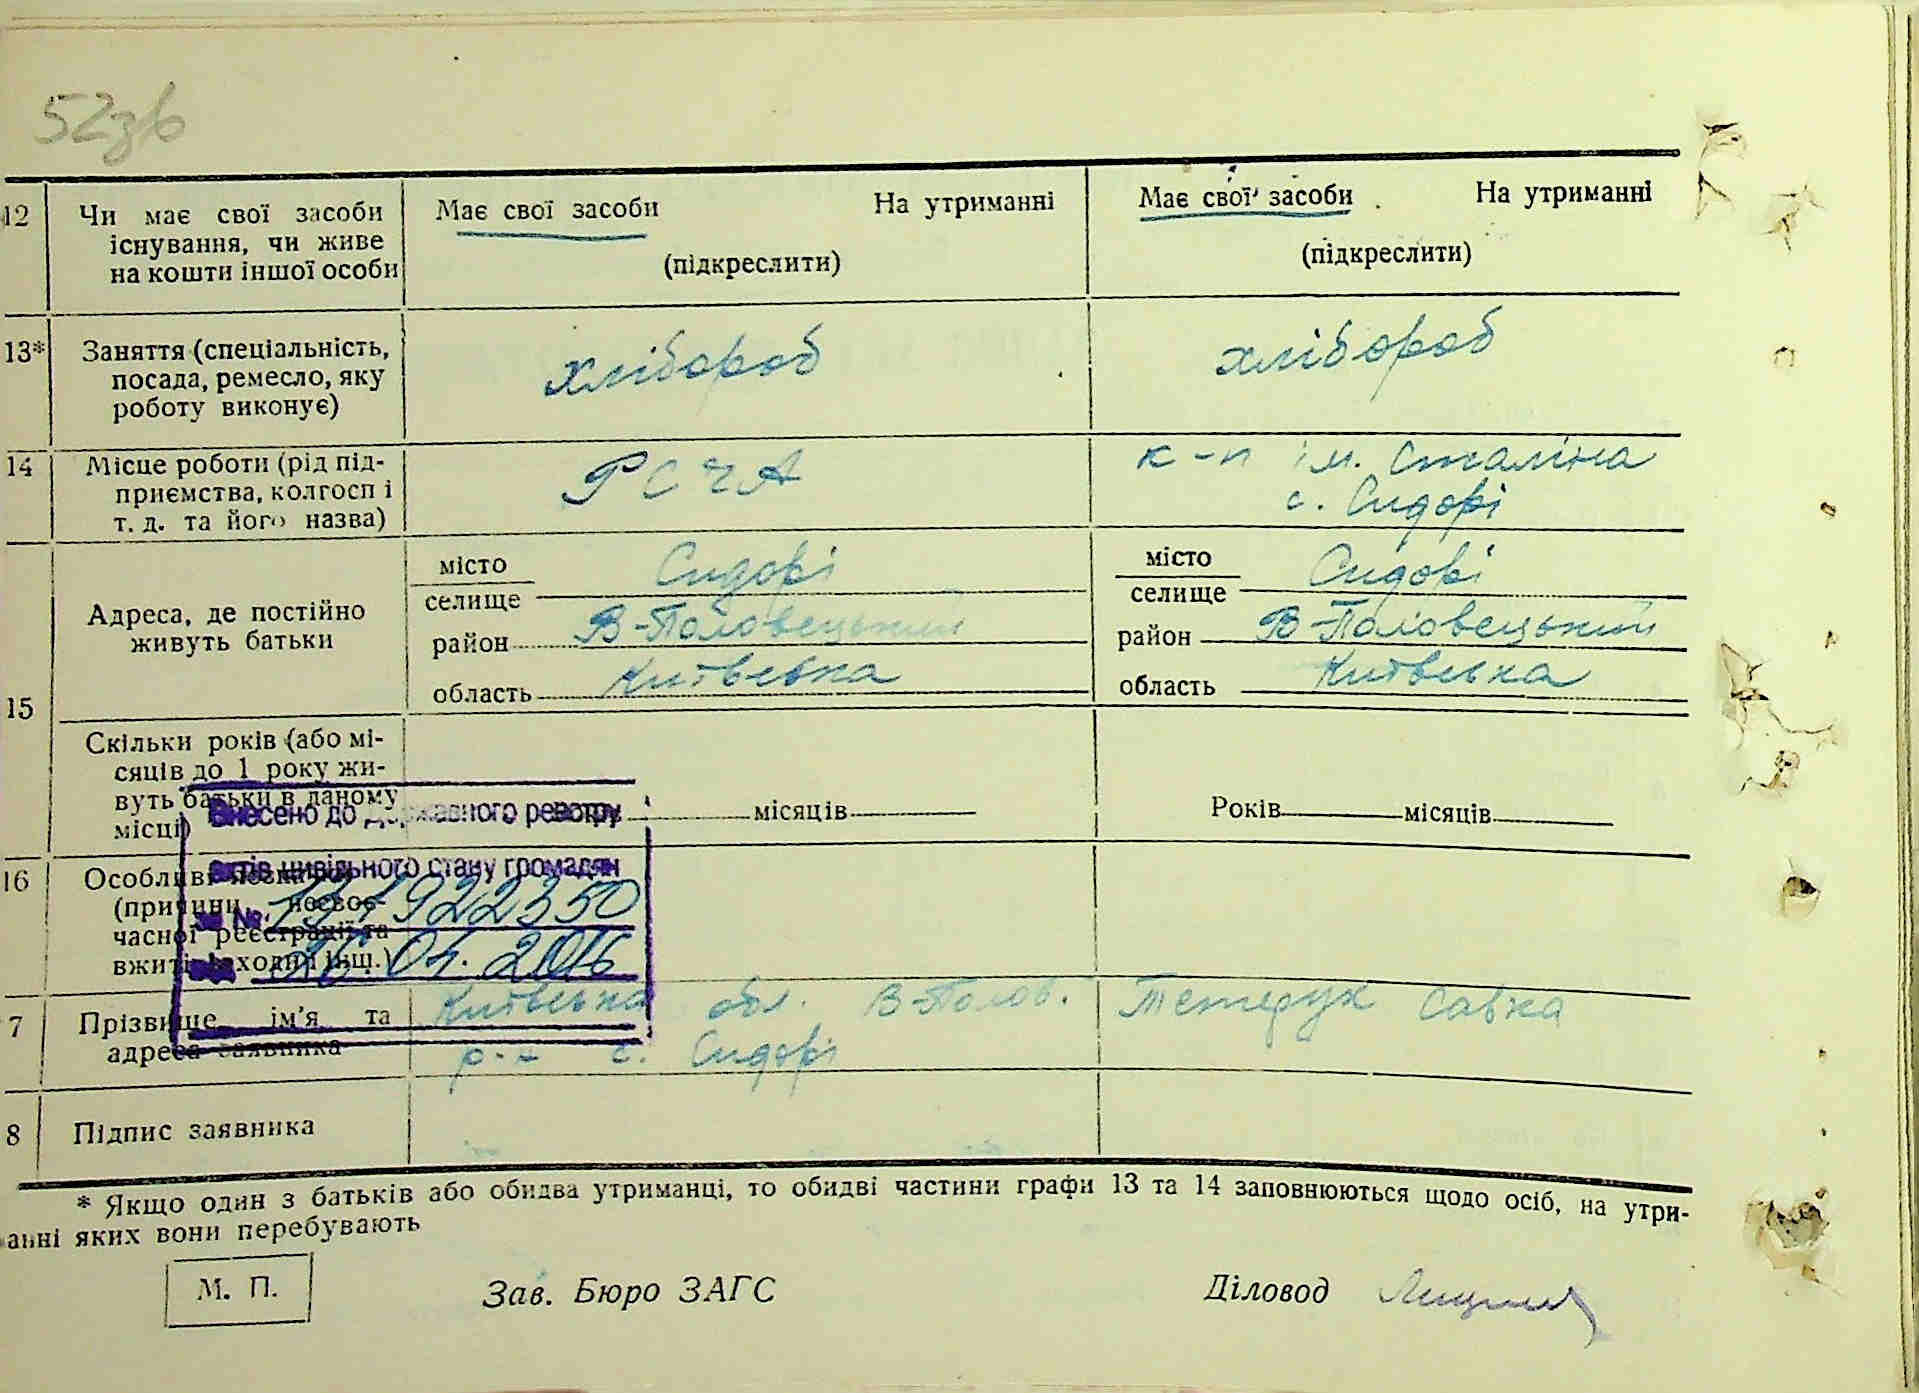 52зв
12 Чи має свої засоби існування, чи живе на кошти іншої особи
Має свої засоби На утриманні
(підкреслити)
Має свої засоби На утриманні
(підкреслити)
13* Заняття (спеціальність, посада, ремесло, яку роботу виконує)
хлібороб
хлібороб
14 Місце роботи (рід під-
приємства, колгосп і
т. д. та його назва)
РСЧА
к-п ім. Сталіна
с. Сидорі
15
Адреса, де постійно
живуть батьки
місто
селище Сидорі
район В-Половецький
область Київська
місто
селище Сидорі
район В-Половецький
область Київська
Скільки років (або мі-
сяців до 1 року жи-
вуть батьки в даному
місці)
місяців
Років місяців
Внесено до Державного реєстру
актів цивільного стану громадян
за №
26.04.2016
16 Особливі
(причини несвоє-
часної реєстрації та
вжиті заходи і інш.)
7 Прізвище, ім’я та
адреса заявника
Київська обл. В-Полов.
р-н с. Сидорі
Тетерук Савка
8 Підпис заявника
* Якщо один з батьків або обидва утриманці, то обидві частини графи 13 та 14 заповнюються щодо осіб, на утри-
анні яких вони перебувають
М. П.
Зав. Бюро ЗАГС
Діловод